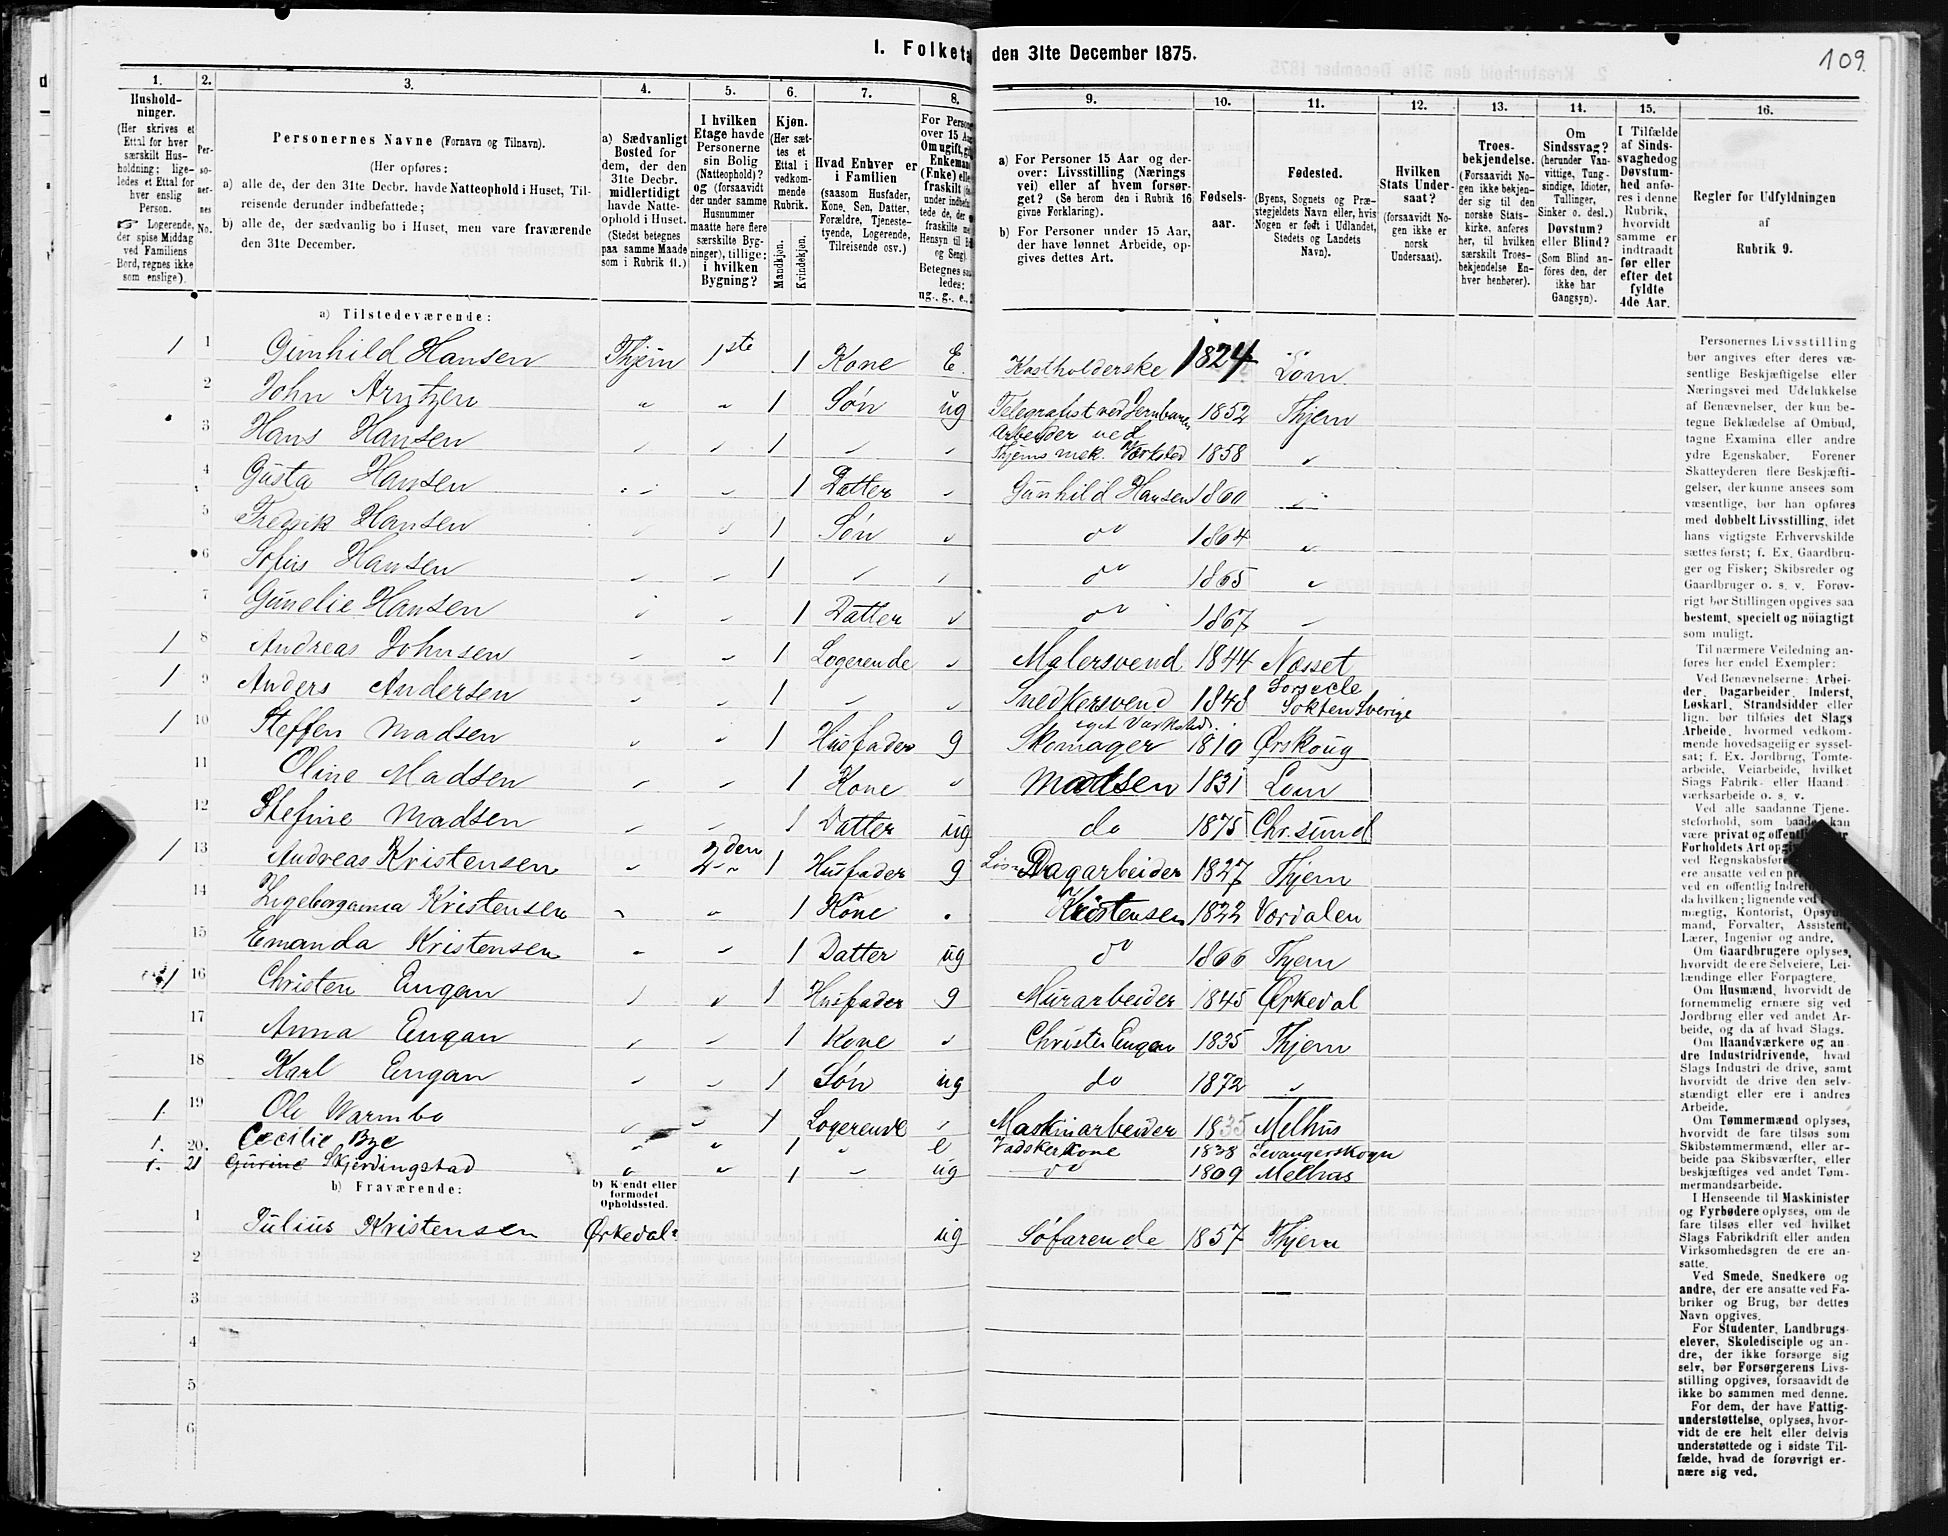 I. Folketæ den 31te December 1875.
109.
1.
2.
3.
4.
5.
6.
7.
8.
9.
10.
11.
12.
13.
14.
15.
16.
Hushold-
ninger.
(Her skrives et
Ettal for hver
særskilt Hus-
holdning; lige-
ledes et Ettal for
hver enslig
Person.
☞ Logerende,
der spise Middag
ved Familiens
Bord, regnes ikke
som enslige).
Per-
so-
ner-
nes
No.
Personernes Navne (Fornavn og Tilnavn).
(Her opføres:
a) alle de, der den 31te Decbr. havde Natteophold i Huset, Til-
reisende derunder indbefattede;
b) alle de, der sædvanlig bo i Huset, men vare fraværende
den 31te December.
a) Sædvanligt
Bosted for
dem, der den
31te Decbr.
midlertidigt
havde Natte-
ophold i Huset.
(Stedet betegnes
paa samme Maade
som i Rubrik 11.)
I hvilken
Etage havde
Personerne
sin Bolig
(Natteophold)?
og (forsaavidt
der under samme
Husnummer
maatte høre flere
særskilte Byg-
ninger), tillige:
i hvilken
Bygning?
Kjøn.
(Her sæt-
tes et
Ettal i
vedkom-
mende
Rubrik.)
Mandkjøn.
Kvindekjøn.
Hvad Enhver er
i Familien
(saasom Husfader,
Kone, Søn, Datter,
Forældre, Tjeneste-
tyende, Logerende,
Tilreisende osv.)
For Persone
over 15 Aa
Om ugift, g
Enkeman
(Enke) elle
fraskilt
under indbef
tede de, der
fraskilte me
Hensyn til B
og Seng).
Betegnes saa
ledes:
ug., g., e.,
a) For Personer 15 Aar og der-
over: Livsstilling (Nærings
vei) eller af hvem forsør-
get? (Se herom den i Rubrik 16
givne Forklaring).
b) For Personer under 15 Aar,
der have lønnet Arbeide, op-
gives dettes Art.
Fødsels-
aar.
Fødested.
(Byens, Sognets og Præ-
stegjeldets Navn eller, hvis
Nogen er født i Udlandet,
Stedets og Landets
Navn).
Hvilken
Stats Under-
saat?
(forsaavidt No-
gen ikke er
norsk
Undersaat).
Troes-
bekjendelse.
(Forsaavidt No-
gen ikke bekjen-
der sig til den
norske Stats-
kirke, anføres
her, til hvilken
særskilt Troes-
bekjendelse En-
hver henhører).
Om
Sindssvag?
(herunder Van-
vittige, Tung-
sindige, Idioter,
Tullinger,
Sinker o. desl.)
Døvstum?
eller Blind?
(Som Blind an-
føres den, der
ikke har
Gangsyn).
I Tilfælde
af Sinds-
svaghed og
Døvstum-
hed anfø-
res i denne
Rubrik,
hvorvidt
samme er
indtraadt
før eller
efter det
fyldte
4de Aar.
Regler for Udfyldningen
af
Rubrik 9.
a) Tilstedeværende:
1 1 Gunhild Hansen Thjem 1ste 1 Kone E. Kostholderske 1824 Lom
2 John Arntzen " " 1 Søn ug Telegrafist ved Jernbanen 1852 Thjem
3 Hans Hansen " " 1 " " Arbeider ved
Thjems mek. Værksted 1858 "
4 Gusta Hansen " " 1 Datter " Gunhild Hansen 1860 "
5 Fredrik Hansen " " 1 Søn " do 1864 "
6 Sofus Hansen " " 1 " " do 1865 "
7 Gunelie Hansen " " 1 Datter " do 1867 "
1 8 Andreas Johnsen " " 1 Logerende " Malersvend 1844 Næsset
1 9 Anders Andersen " " 1 " " Snedkersvend 1848 Sokten Sverige
1 10 Steffen Madsen " " 1 Husfader g Skomager eget Værksted 1810 Ørskoug
11 Oline Madsen " " 1 Kone " Madsen 1831 Lom
12 Stefine Madsen " " 1 Datter ug do 1875 Chr.sund
1 13 Andreas Kristensen " 2den 1 Husfader g Løs Dagarbeider 1827 Thjem
14 Ingeborganna Kristensen " " 1 Kone " Kristensen 1822 Værdalen
15 Emanda Kristensen " " 1 Datter ug do 1866 Thjem
1 16 Christen Engan " " 1 Husfader g Murarbeider 1845 Ørkedal
17 Anna Engan " " 1 Kone " Christen Engan 1835 Thjem
18 Karl Engan " " 1 Søn ug do 1872 "
1. 19 Ole Warmbo " " 1 Logerende " Maskinarbeider 1835 Melhus
1. 20. Cecilie Bye " " 1 " e Vadskerkone 1838 Levangerskogn
1. 21 Gurine Skjerdingstad " " 1 " ug do 1809 Melhus
b) Fraværende:
b) Kjendt eller
formodet
Opholdssted.
1 Julius Kristensen Ørkedal ug Søfarende 1857 Thjem
2
3
4
5
6
Personernes Livsstilling
bør angives efter deres væ-
sentlige Beskjæftigelse eller
Næringsvei med Udelukkelse
af Benævnelser, der kun be-
tegne Beklædelse af Ombud,
tagne Examina eller andre
ydre Egenskaber. Forener
Skatteyderen flere Beskjæfti-
gelser, der kunne ansees som
væsentlige, bør han opføres
med dobbelt Livsstilling, idet
hans vigtigste Erhvervskilde
sættes først; f. Ex. Gaardbru-
ger og Fisker; Skibsreder og
Gaardbruger o. s. v. Forøv-
rigt bør Stillingen opgives saa
bestemt, specielt og nöiagtigt
som muligt.
Til nærmere Veiledning an-
føres her endel Exempler:
Ved Benævnelserne: Arbei-
der, Dagarbeider, Inderst,
Løskarl, Strandsidder eller
lign. bør tilføies det Slags
Arbeide, hvormed vedkom-
mende hovedsagelig er syssel-
sat; f. Ex. Jordbrug, Tomte-
arbeide, Veiarbeide, hvilket
Slags Fabrik- eller Haand-
værksarbeide o. s. v.
Ved alle saadanne Tjene-
steforhold, som baade kan
være privat og offentl
Forholdets Art opgi
ved Regnskabsfør
ere ansatte ved en
ved en offentlig Indret
da hvilken; lignende ved
mægtig, Kontorist, Opsyn
mand, Forvalter, Assistent,
Lærer, Ingeniør og andre.
Om Gaardbrugere oplyses,
hvorvidt de ere Selveiere, Lei-
lændinge eller Forpagtere.
Om Husmænd, hvorvidt de
fornemmelig ernære sig ved
Jordbrug eller ved andet Ar-
beide, og da af hvad Slags.
Om Haandværkere og an-
dre Industridrivende, hvad
Slags Industri de drive, samt
hvorvidt de drive den selv-
stændigt eller ere i andres
Arbeide.
Om Tømmermænd oplyses,
hvorvidt de fare tilsøs som
Skibstømmermænd, eller ar-
beide paa Skibsværfter, eller
beskjæftiges ved andet Tøm-
mermandsarbeide.
I Henseende til Maskinister
og Fyrbødere oplyses, om de
fare tilsøs eller ved hvilket
Slags Fabrikdrift eller anden
Virksomhedsgren de ere an-
satte.
Ved Smede, Snedkere og
andre, der ere ansatte ved Fa-
briker og Brug, bør dettes
Navn opgives.
For Studenter, Landbrugs-
elever, Skoledisciple og an-
dre, der ikke forsørge sig
selv, bør Forsørgerens Livs-
stilling opgives, forsaavidt de
ikke bo sammen med denne.
For dem, der have Fattig-
understøttelse, oplyses, hvor-
vidt de ere helt eller delvis
understøttede og i sidste Til-
fælde, hvad de forøvrigt er-
nære sig ved.